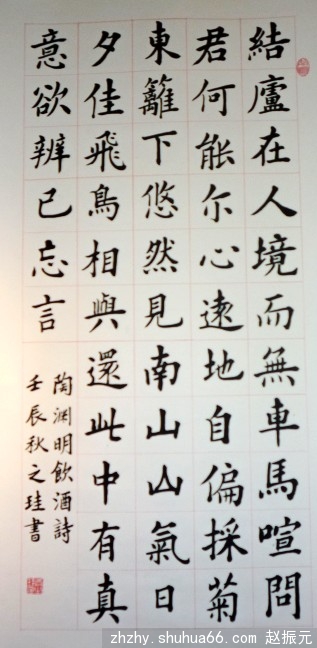 結廬在人境而無車馬喧問
君何能尔心遠地自偏採菊
東籬下悠然見南山山氣日
夕佳飛鳥相與還此中有真
意欲辨已忘言
陶渊明飲酒詩
壬辰秋之珪書
zhzhy.shuhua66.com 赵振元